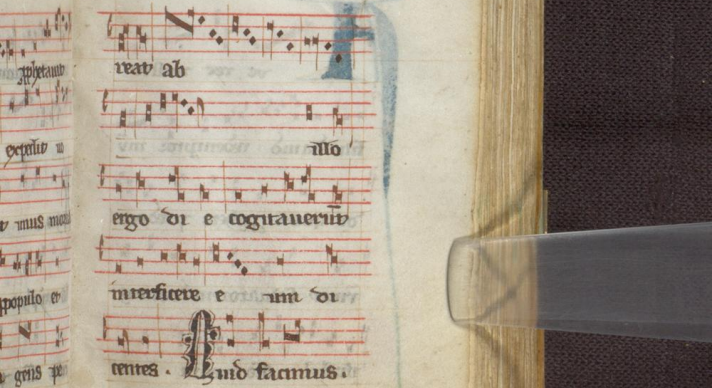 xphetauit
expedit
mus
populo et
gens
reat ab
illo
ergo di e cogitauerūt
interficere e um di
centes .
Quid facimus .